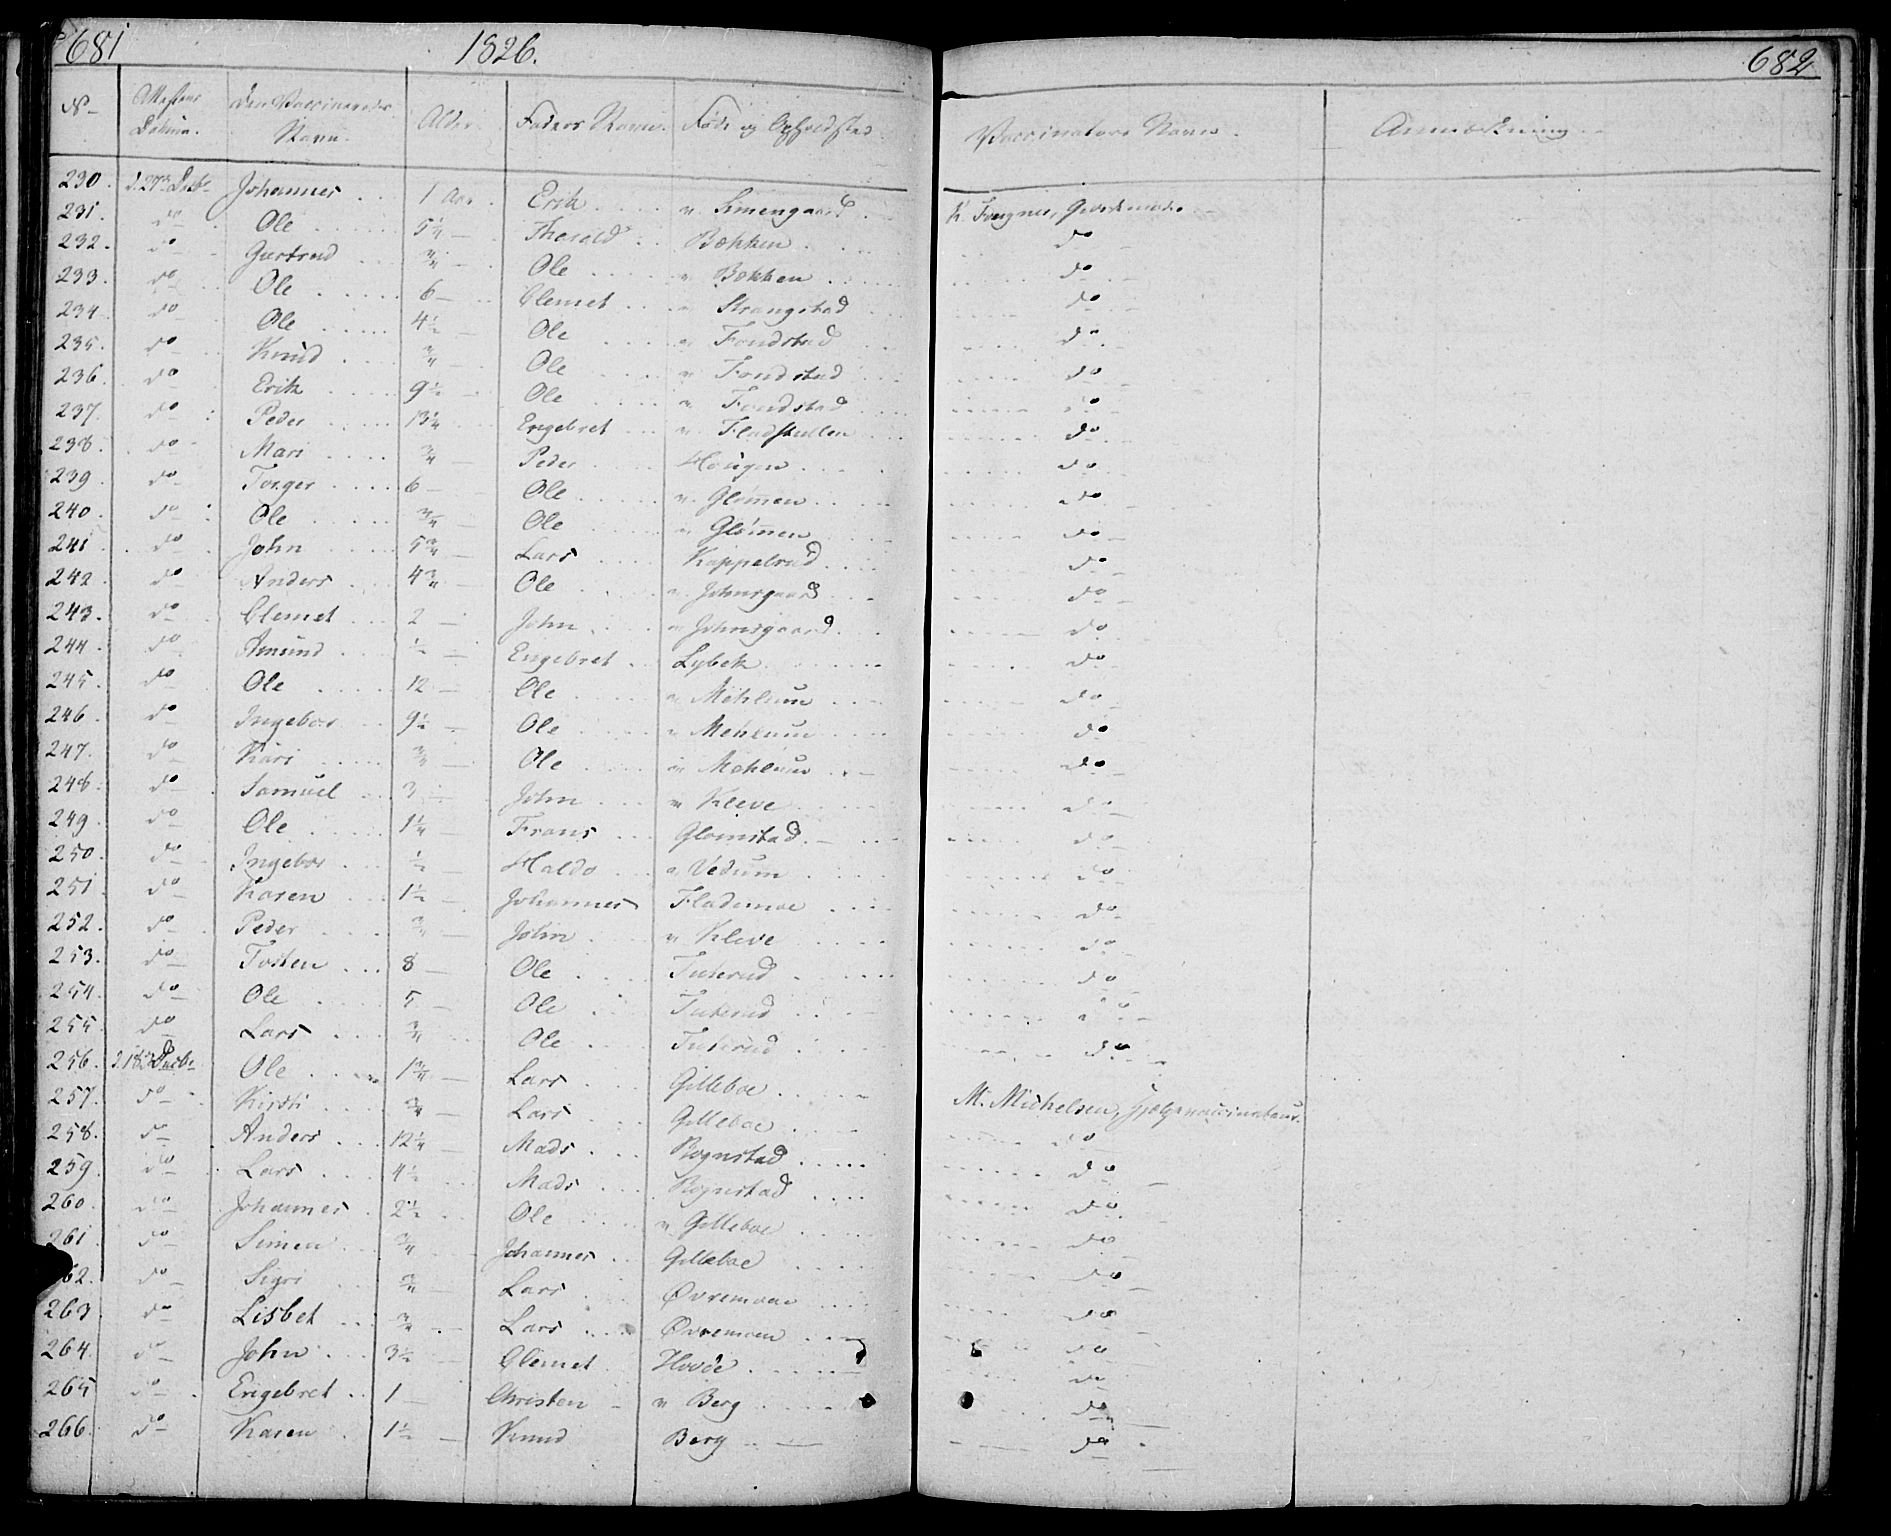 681 1826. 682
No Attestens Datum. Den Vaccineredes Navn. Alder Faders Navn. Føde og Opholdsted Vaccinators Navn. Anmærkning.
230. d. 27 Johannes 1 Aar. Erik Simengaard K. Fougner, Gjordemoder
231. do Ole 5 1/4 Tharald Bækken do
232. do Giertrud 3/4 Ole Bækken do
233. do Ole 6 Clemet Strangstad do
234. do Ole 4 1/2 Ole Fondstad do
235. do Knud 3/4 Ole Fondstad do
236. do Erik 9 1/2 Ole Fondstad do
237. do Peder 13 1/4 Engebret do
238. do Mari 3/4 Peder Hougen do
239. do Torger 6 Ole Glømmen do
240. do Ole 3/4 Ole Glømmen do
241. do John 5 3/4 Lars Kappelrud do
242. do Anders 4 3/4 Ole Johnsgaard do
243. do Clemet 2 John Johnsgaard do
244. do Amund 1/2 Engebret Lybek do
245. do Ole 12 Ole Mehlum do
246. do Ingebor 9 1/2 Ole Mehlum do
247. do Kari 3/4 Ole Mehlum do
248. do Samuel 3 John Kleve do
249. do Ole 1 1/4 Frans Glomstad do
250. do Ingebor 1/2 Haldo Vedum do
251. do Karen 1 1/2 Johannes Flademoe do
252. do Peder 3/4 John Kleve do
253. do Tosten 8 Ole Tuterud do
254. do Ole 5 Ole Tuterud do
255. do Lars 3/4 Ole Tuterud do
256. d. 18 Decbr Ole 1 3/4 Lars Gilleboe M. Michelsen, Hjælpevaccinateur.
257. do Kirsti 3/4 Lars Gilleboe do
258. do Anders 12 1/4 Mads Rognstad do
259. do Lars 4 1/2 Mads Rognstad do
260. do Johannes 2 1/2 Ole Gilleboe do
261. do Simen 3/4 Johannes Gilleboe do
62. do Sigri 3/4 Lars Øvremoen do
263 do Lisbet 3/4 Lars Øvremoen do
264. do John 3 1/2 Clemet Hovde do
265 do Engebret 1 Christen Berg do
266. do Karen 1 1/2 Knud Berg do